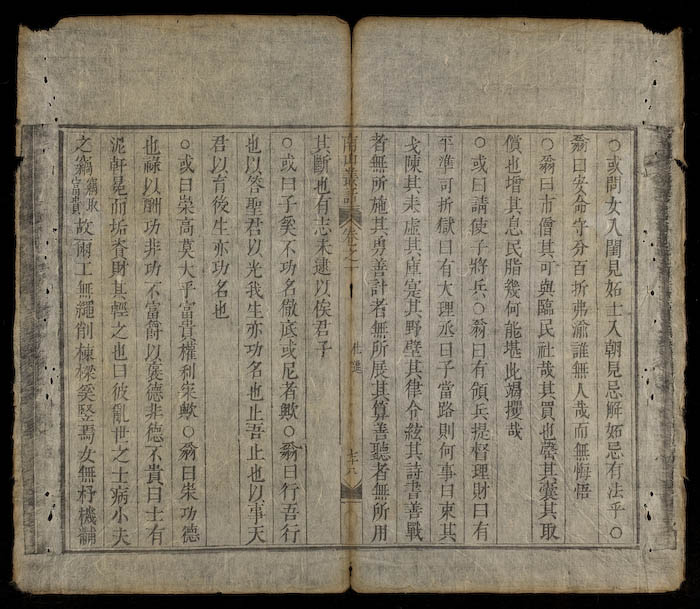 ○或問女入閨見妬士入朝見忌解妬忌有法乎○
翁曰安命守分百折弗爺誰無人哉而無悔悟
○翁曰市儈其可與臨民社哉其買也罄其囊其取
償也增其息民脂幾何能堪此竭攫哉
○或曰請使子將兵○翁曰有領兵提督理財曰有
平準可折獄曰有大理丞曰子當路則何事曰束其
戈陳其耒虛其庫寔其野壁其律令絃其詩書善戰
者無所施其勇善計者無所展其算善聽者無所用
南山叢 卷之一
其斷也有志未逮以俟君子
○或曰子奚不功名徹底或尼者歟○翁曰行吾行
也以答聖君以光我生亦功名也止吾止也以事天
君以育後生亦功名也
○或曰崇高莫大乎富貴權利宋歟○翁曰崇功德
也祿以酬功非功不富爵以襃德非德不貴曰士有
泥軒冕而垢資財其輕之也曰彼亂世之士病小夫
之竊竊取富貴故爾工無繩削棟樑奚豎焉女無杼機黼